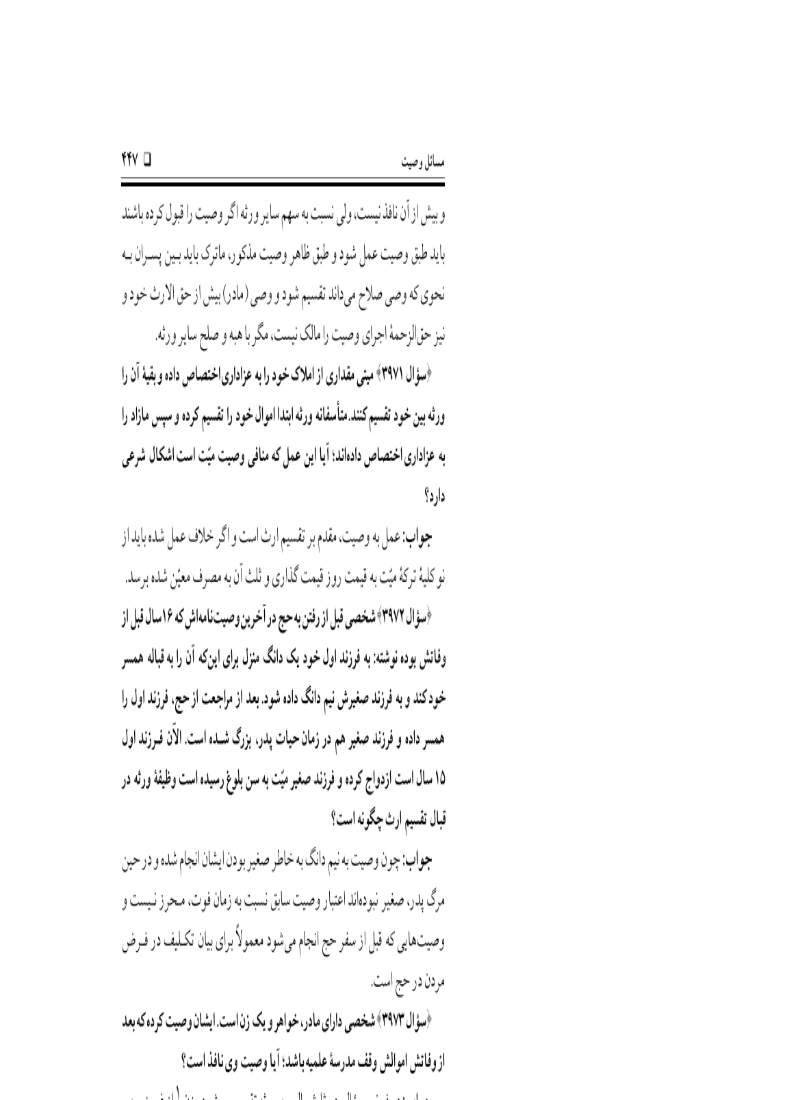 مسائل وصیت ❑ ۴۴۷
و بیش از آن نافذ نیست، ولی نسبت به سهم سایر ورثه اگر وصیت را قبول کرده باشند
باید طبق وصیت عمل شود و طبق ظاهر وصیت مذکور، ماترک باید بـین پسـران بـه
نحوی که وصی صلاح می‌داند تقسیم شود و وصی (مادر) بیش از حق الارث خود و
نیز حق‌الزحمهٔ اجرای وصیت را مالک نیست، مگر با هبه و صلح سایر ورثه.
﴿سؤال ۳۹۷۱﴾ میتی مقداری از املاک خود را به عزاداری اختصاص داده و بقیهٔ آن را
ورثه بین خود تقسیم کنند. متأسفانه ورثه ابتدا اموال خود را تقسیم کرده و سپس مازاد را
به عزاداری اختصاص داده‌اند؛ آیا این عمل که منافی وصیت میّت است اشکال شرعی
دارد؟
جواب: عمل به وصیت، مقدم بر تقسیم ارث است و اگر خلاف عمل شده باید از
نو کلیهٔ ترکهٔ میّت به قیمت روز قیمت گذاری و ثلث آن به مصرف معیّن شده برسد.
﴿سؤال ۳۹۷۲﴾ شخصی قبل از رفتن به حج در آخرین وصیت‌نامه‌اش که ۱۶ سال قبل از
وفاتش بوده نوشته: به فرزند اول خود یک دانگ منزل برای این‌که آن را به قباله همسر
خود کند و به فرزند صغیرش نیم دانگ داده شود. بعد از مراجعت از حج، فرزند اول را
همسر داده و فرزند صغیر هم در زمان حیات پدر، بزرگ شـده است. الآن فـرزند اول
۱۵ سال است ازدواج کرده و فرزند صغیر میّت به سن بلوغ رسیده است وظیفهٔ ورثه در
قبال تقسیم ارث چگونه است؟
جواب: چون وصیت به نیم دانگ به خاطر صغیر بودن ایشان انجام شده و در حین
مرگ پدر، صغیر نبوده‌اند اعتبار وصیت سابق نسبت به زمان فوت، مـحرز نـیست و
وصیت‌هایی که قبل از سفر حج انجام می‌شود معمولاً برای بیان تکـلیف در فـرض
مردن در حج است.
﴿سؤال ۳۹۷۳﴾ شخصی دارای مادر، خواهر و یک زن است. ایشان وصیت کرده که بعد
از وفاتش اموالش وقف مدرسهٔ علمیه باشد؛ آیا وصیت وی نافذ است؟